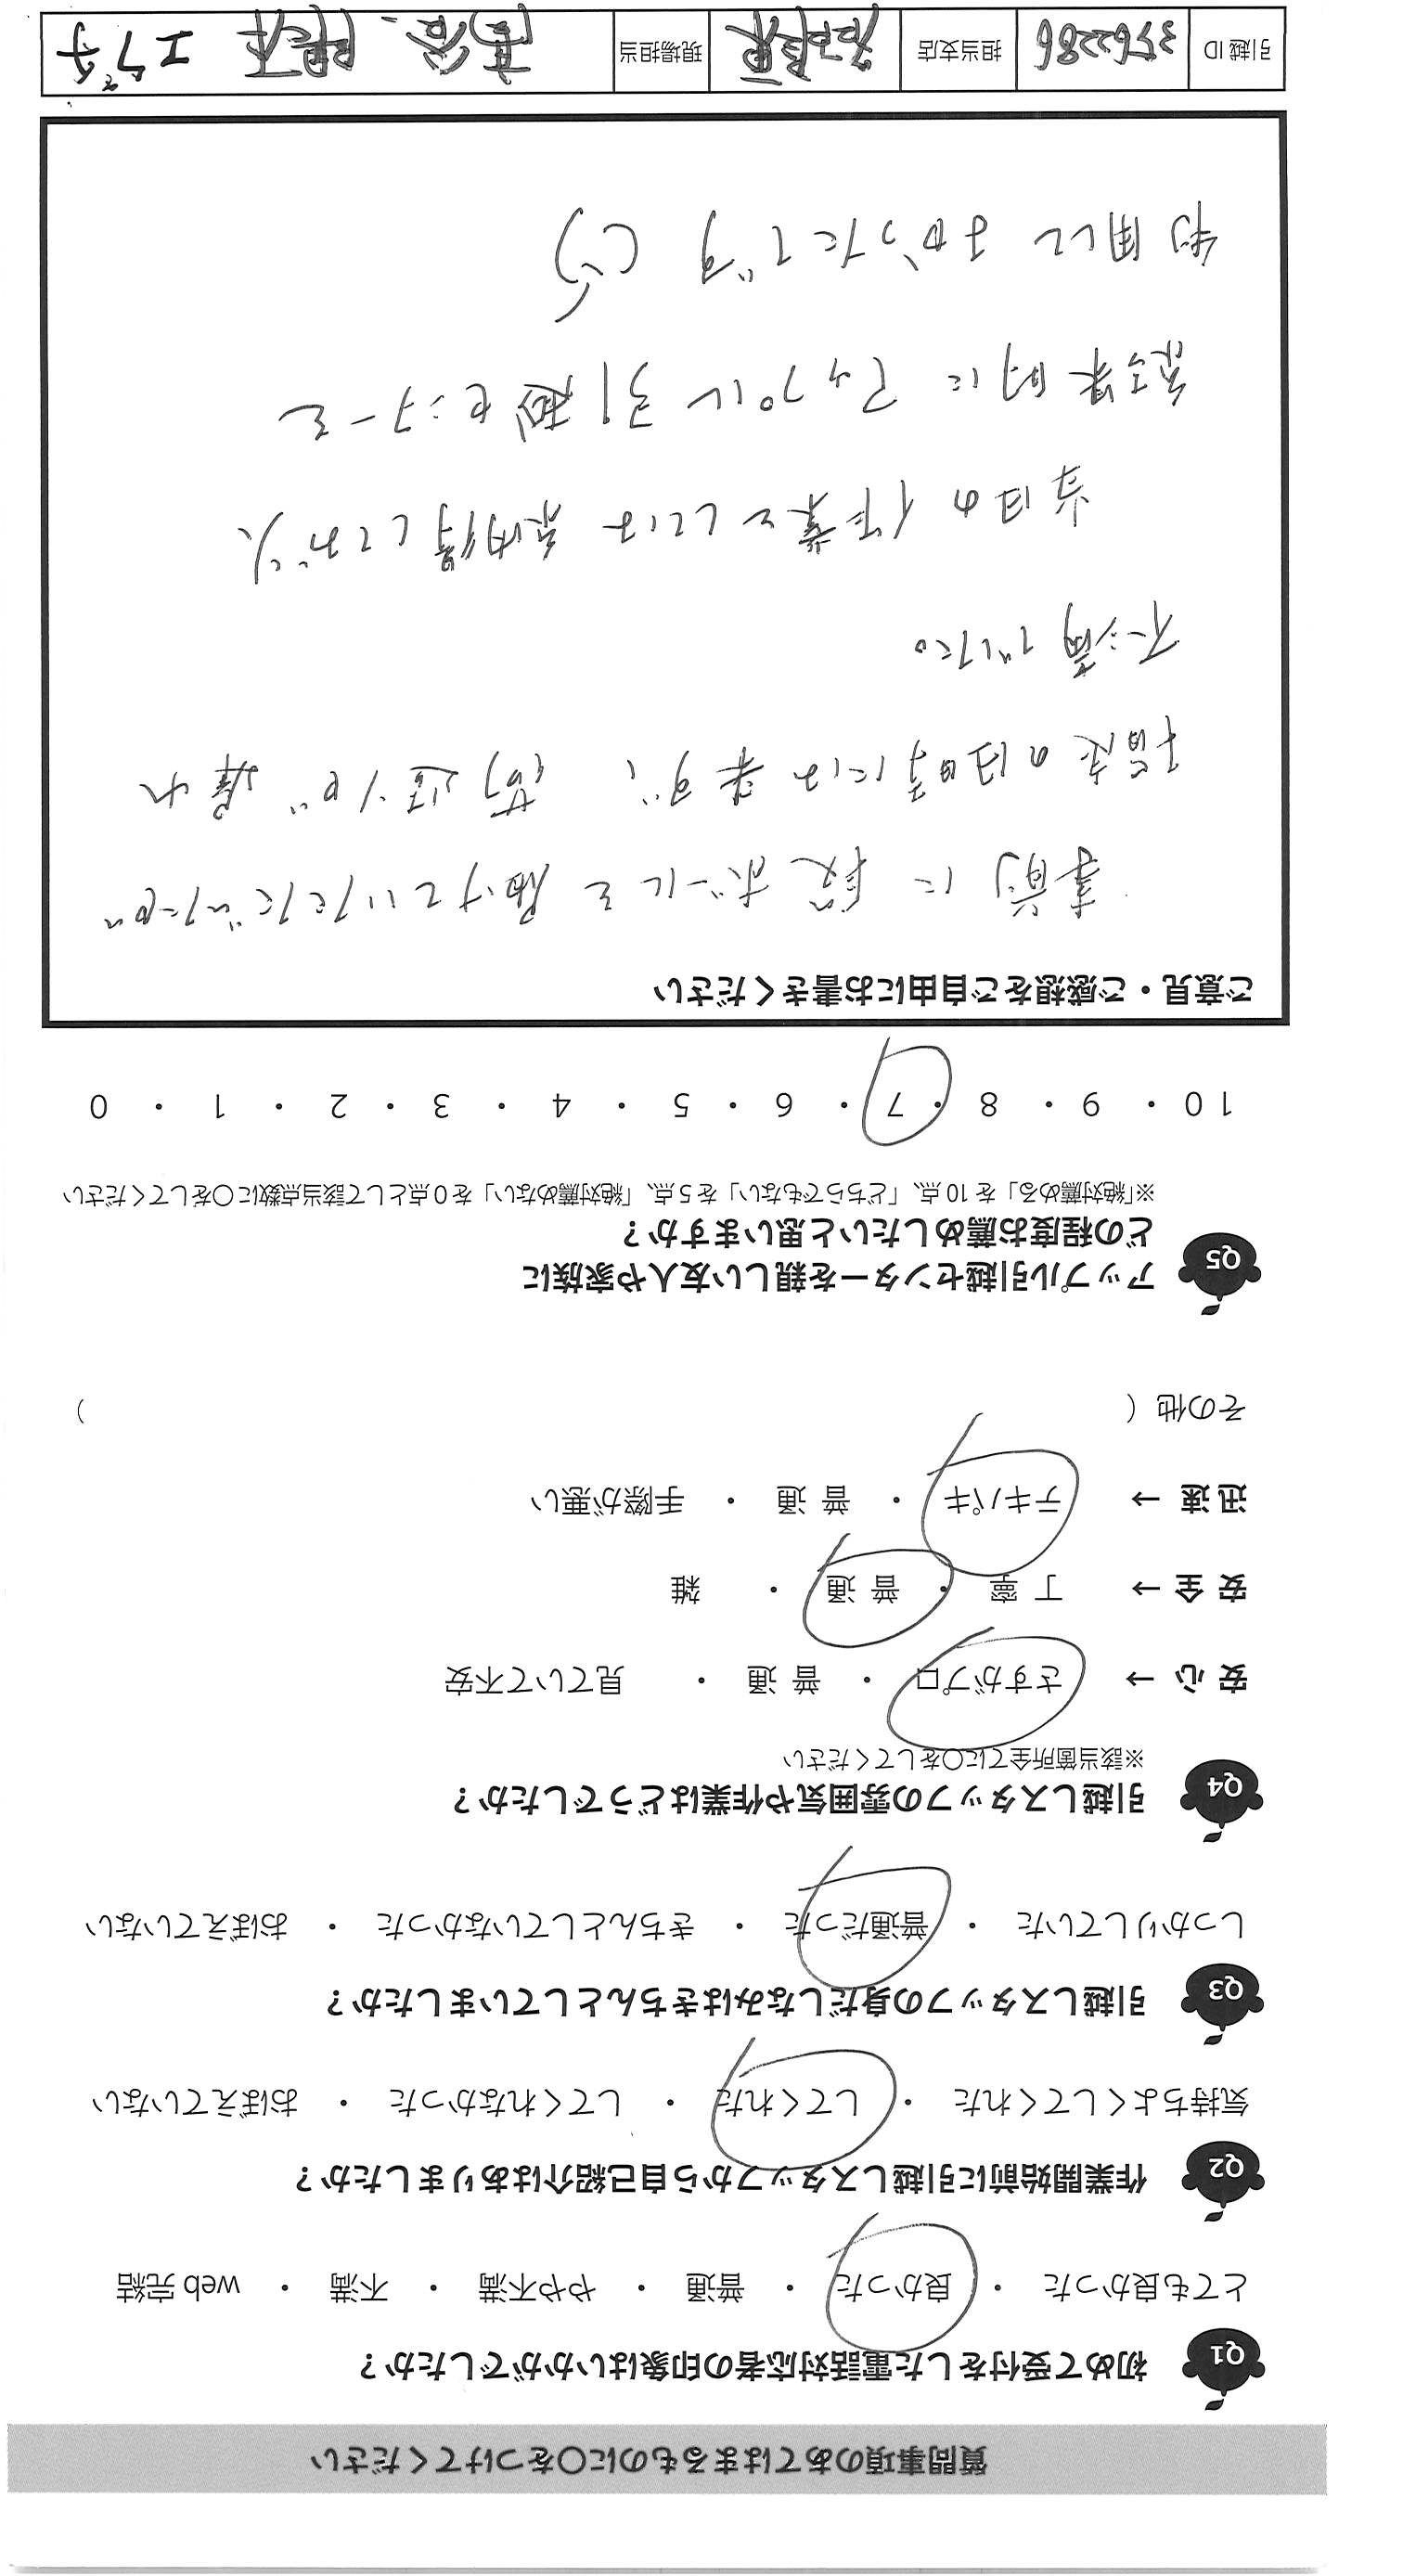 質問事項のあてはまるものに○をつけてください
Q1 初めて受付をした電話対応者の印象はいかがでしたか？
とても良かった ・ 良かった ・ 普通 ・ やや不満 ・ 不満 ・ web 完結
Q2 作業開始前に引越しスタッフから自己紹介はありましたか？
気持ちよくしてくれた ・ してくれた ・ してくれなかった ・ おぼえていない
Q3 引越しスタッフの身だしなみはきちんとしていましたか？
しっかりしていた ・ 普通だった ・ きちんとしていなかった ・ おぼえていない
Q4 引越しスタッフの雰囲気や作業はどうでしたか？
※該当箇所全てに○をしてください
安 心 → さすがプロ ・ 普 通 ・ 見ていて不安
安 全 → 丁 寧 ・ 普 通 ・ 雑
迅 速 → テキパキ ・ 普 通 ・ 手際が悪い
その他（ ）
Q5 アップル引越センターを親しい友人や家族に
どの程度お薦めしたいと思いますか？
※「絶対薦める」を 10 点、「どちらでもない」を 5 点、「絶対薦めない」を 0 点として該当点数に○をしてください
10 ・ 9 ・ 8 ・ 7 ・ 6 ・ 5 ・ 4 ・ 3 ・ 2 ・ 1 ・ 0
ご意見・ご感想をご自由にお書きください
事前に段ボールを届けていただいたが
指定の日時には来ず、荷造りが遅れ
不満でした。
当日の作業としては納得しており
結果的にアップル引越センターを
利用してよかったです
引越 ID 3762286 担当支店 現場担当